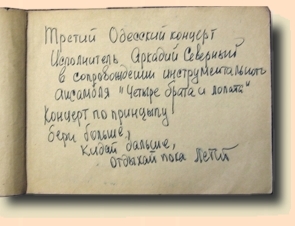 Третий Одесский концерт
Исполнитель Аркадий Северный
в сопровождении инструментального
ансамбля "Четыре брата и лопата"
Концерт по принципу
бери больше,
кидай дальше,
отдыхай пока летит